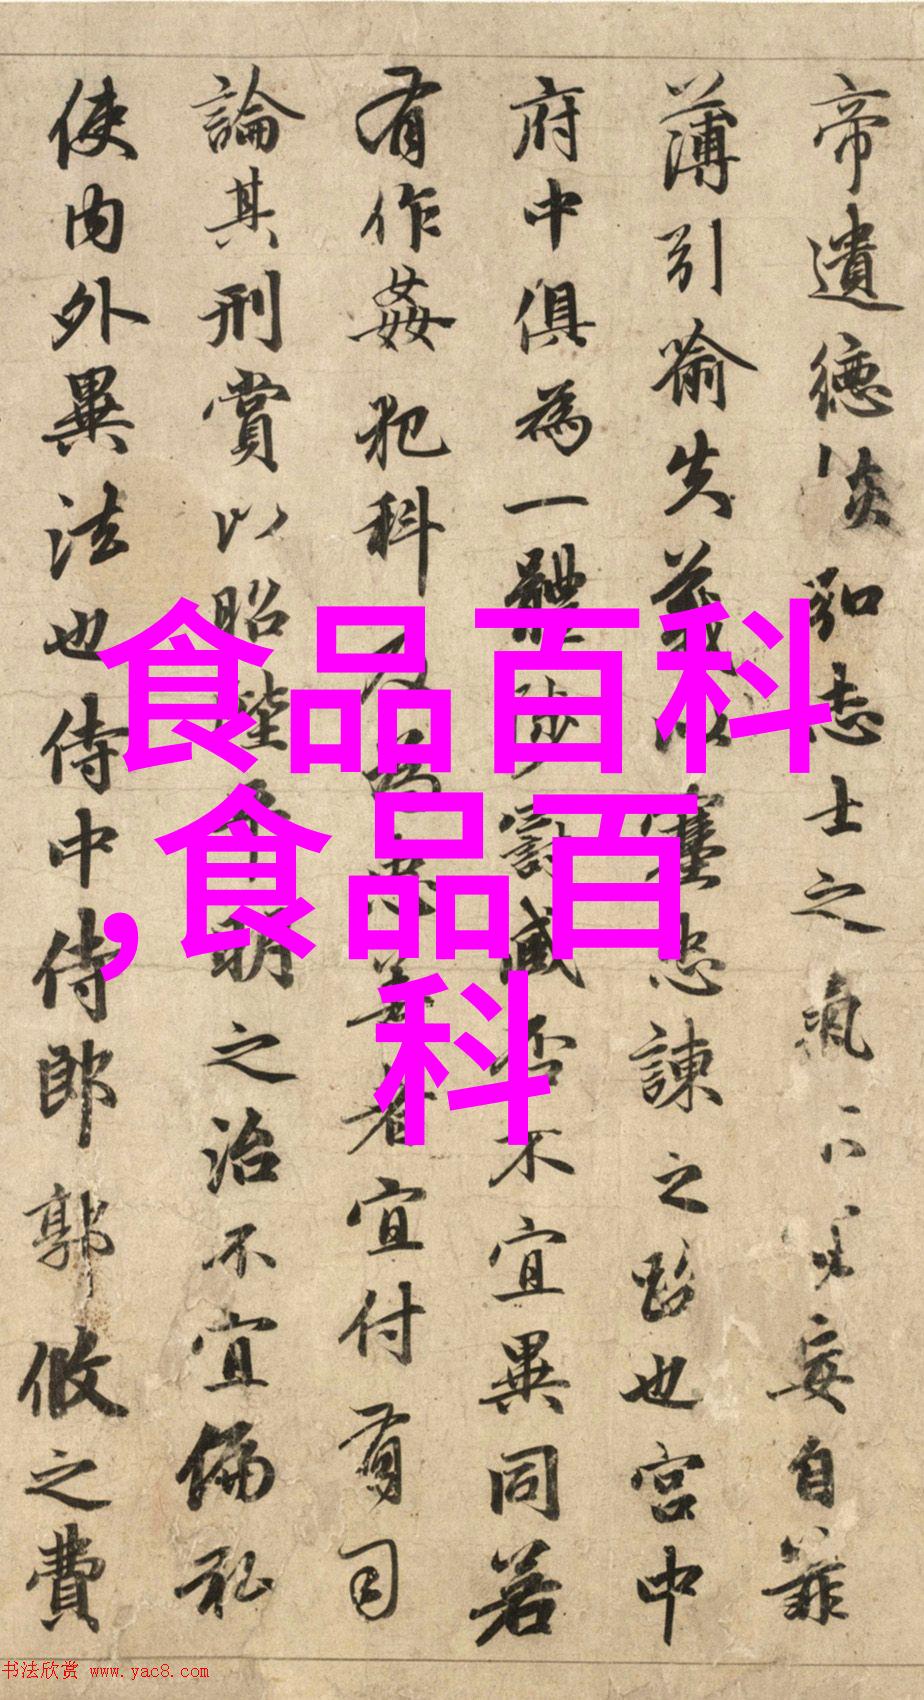 帝遺德恢弘志士之氣不宜妄自菲
薄引喻失義以塞忠諫之路也宮中
府中俱為一體陟罰臧否不宜異同若
有作姦犯科及為忠善者宜付有司
論其刑賞以昭陛平明之治不宜偏私
使內外異法也侍中侍郎郭攸之費
食品百科
,食品百
科
书法欣赏 www.yac8.com